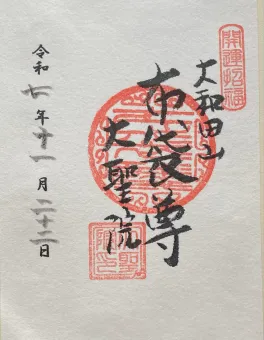 開運招福
大和田山
布袋尊
大聖院
令和七年十一月二十二日